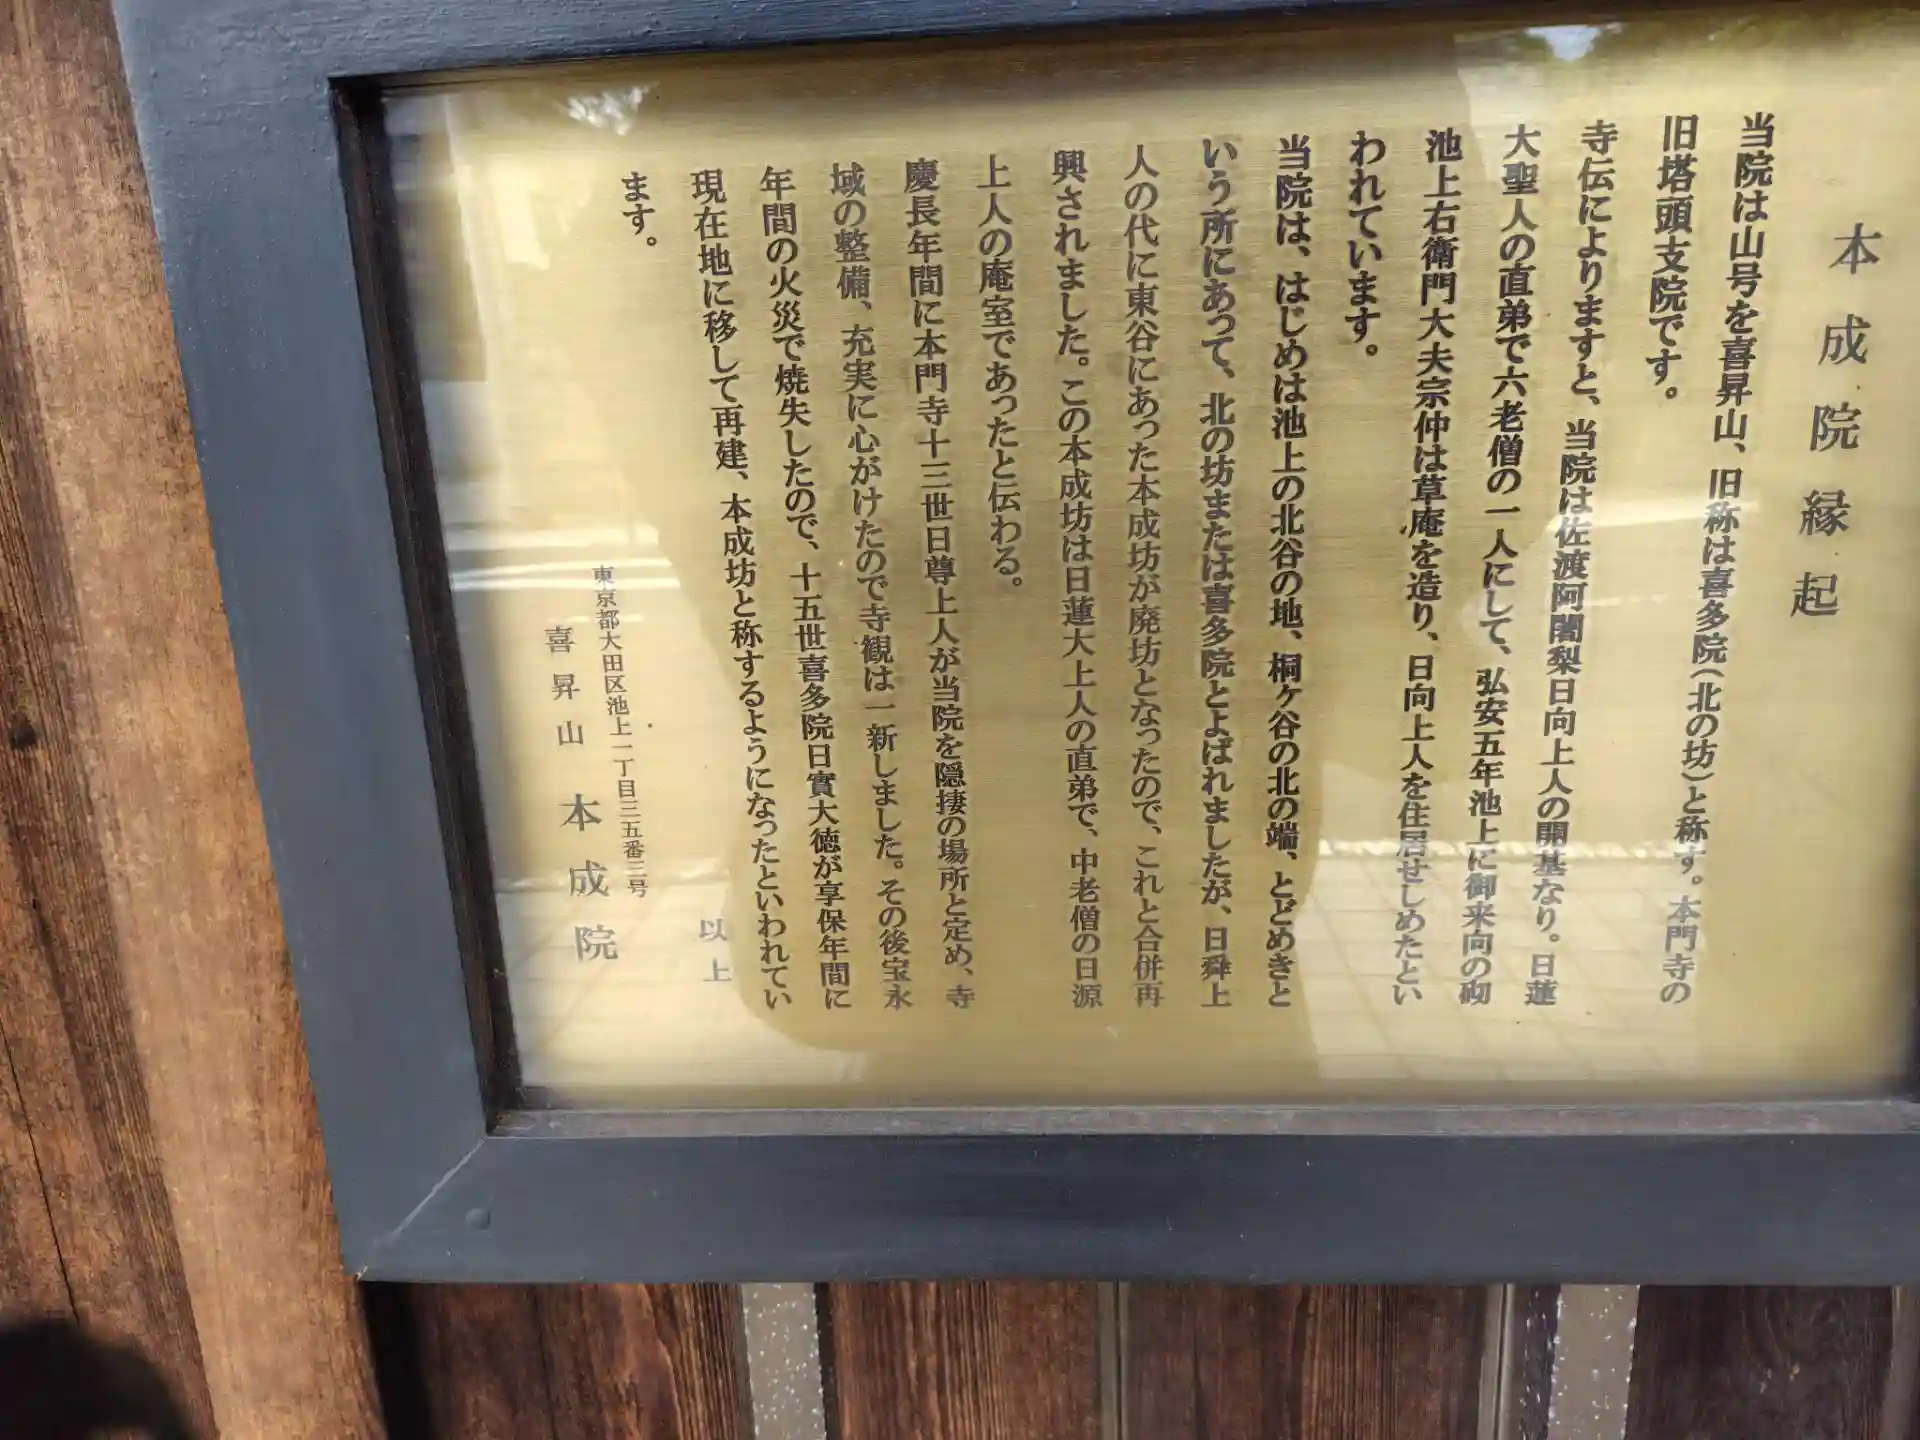 本成院縁起
当院は山号を喜昇山、旧称は喜多院(北の坊)と称す。本門寺の
旧塔頭支院です。
寺伝によりますと、当院は佐渡阿闍梨日向上人の開基なり。日蓮
大聖人の直弟で六老僧の一人にして、弘安五年池上に御来向の砌
池上右衛門大夫宗仲は草庵を造り、日向上人を住居せしめたとい
われています。
当院は、はじめは池上の北谷の地、桐ヶ谷の北の端、とどめきと
いう所にあって、北の坊または喜多院とよばれましたが、日舜上
人の代に東谷にあった本成坊が廃坊となったので、これと合併再
興されました。この本成坊は日蓮大上人の直弟で、中老僧の日源
上人の庵室であったと伝わる。
慶長年間に本門寺十三世日尊上人が当院を隠捿の場所と定め、寺
域の整備、充実に心がけたので寺観は一新しました。その後宝永
年間の火災で焼失したので、十五世喜多院日實大徳が享保年間に
現在地に移して再建、本成坊と称するようになったといわれてい
ます。
以上
東京都大田区池上一丁目三五番三号
喜昇山 本成院